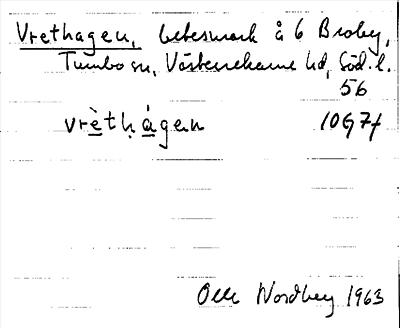 Vrethagen, betesmark å 6 Broby,
Tumbo sn, Västerrekarne hd, Söd. l.
56
vrètḥágen 10G7f
Olle Nordberg 1963